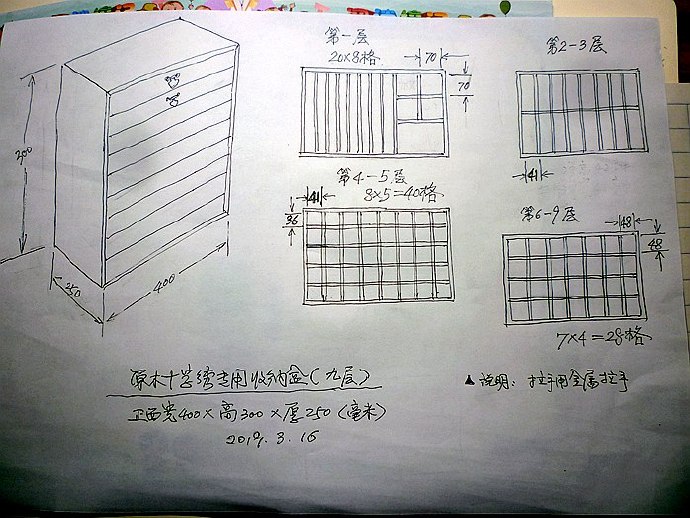 第一层
20×8格
70
70
第2-3层
41
第4-5层
41
8×5=40格
36
第6-9层
48
48
7×4=28格
250
400
原木十字绣专用收纳盒(九层)
正面宽400×高300×厚250(毫米)
2019.3.16
▲说明:拉手用金属拉手